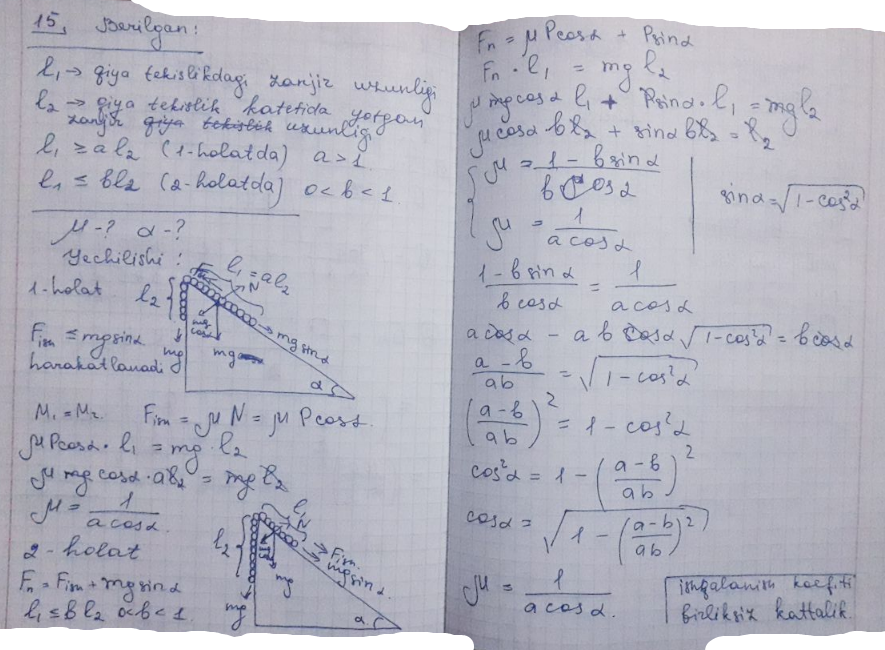 15, Berilgan:
l₁ → qiya tekislikdagi zanjir uzunligi
l₂ → qiya tekislik katetida yotgan
zanjir qiya tekislik uzunligi
l₁ ≥ al₂ (1-holatda) a > 1
l₁ ≤ bl₂ (2-holatda) 0 < b < 1
μ-? α-?
Yechilishi:
1-holat
l₂
l₁ = al₂
N
mg
mg
mg sinα
α
Fᵢₘ ≤ mg sinα
harakatlanadi
M₁ = M₂. Fᵢₘ = μN = μPcosα.
μPcosα · l₁ = mg · l₂
μ mg cosα · al₂ = mg l₂
μ = 1 / a cosα.
2-holat
Fₙ = Fᵢₘ + mg sinα
l₁ ≤ Bl₂ 0<b<1.
l₂
l₁
N
Fᵢₘ.
mg sinα.
mg
mg
α
Fₙ = μPcosα + Psinα
Fₙ · l₁ = mg l₂
μ mg cosα l₁ + Psinα · l₁ = mg l₂
μ cosα · bl₂ + sinα bl₂ = l₂
μ = 1 - b sinα / b cosα
μ = 1 / a cosα
sinα = √(1 - cos²α)
1 - b sinα / b cosα = 1 / a cosα
a cosα - a b cosα √(1 - cos²α) = b cosα
a - b / ab = √(1 - cos²α)
(a - b / ab)² = 1 - cos²α
cos²α = 1 - (a - b / ab)²
cosα = √(1 - (a - b / ab)²)
μ = 1 / a cosα.
ishqalanish koefiti
birliksiz kattalik.